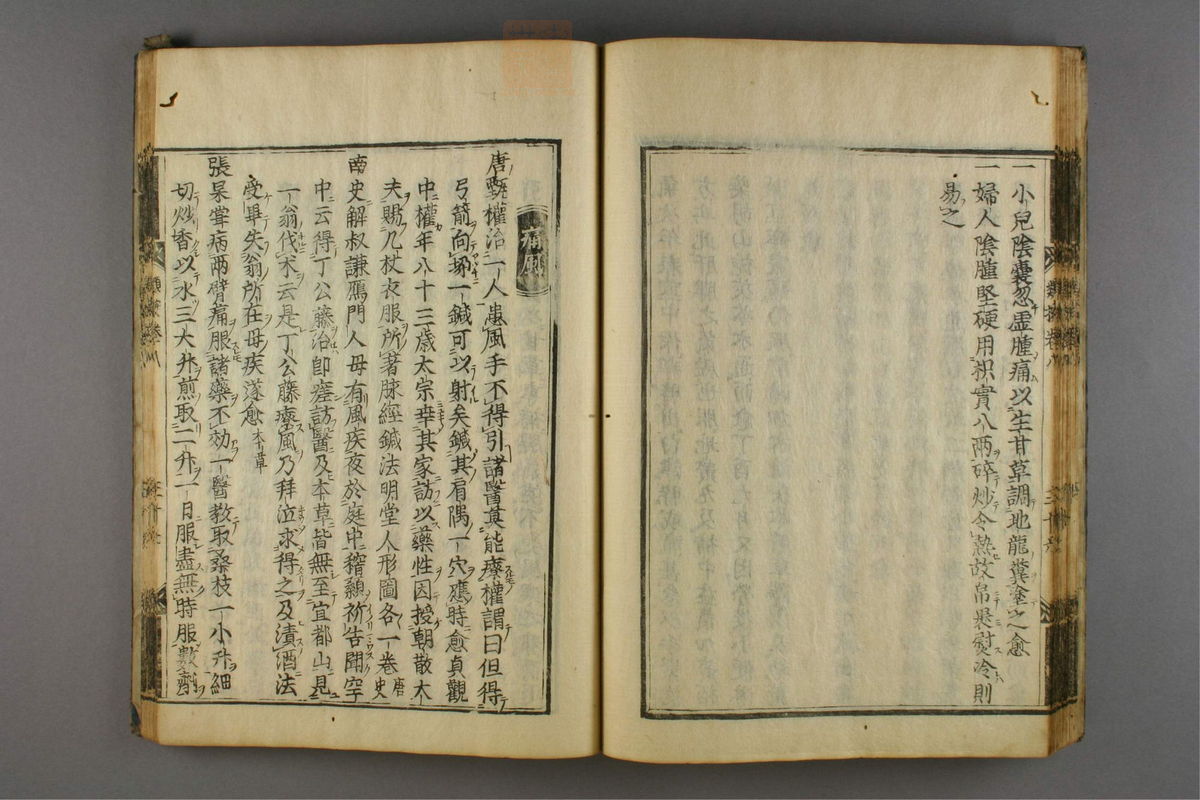 一小兒陰嚢忽虚腫痛以生甘草調地龍糞塗之愈
一婦人陰腫堅硬用枳實八兩碎炒令熱故帛裹熨冷則
易之
痛風
唐甄權治一人患風手不得引諸醫莫能療權謂曰但得
弓箭向堋一鍼可以射矣鍼其肩隅一穴應時愈貞觀
中權年八十三歳太宗幸其家訪以藥性因授朝散大
夫賜几杖衣服所著脉經鍼法明堂人形圖各一卷唐史
南史解叔謙鴈門人母有風疾夜於庭中稽顙祈告聞空
中云得丁公藤治即瘥訪醫及本草皆無至宜都山見
一翁伐木云是丁公藤療風乃拜泣求得之及漬酒法
受畢失翁所在母疾遂愈本草
張杲嘗病兩臂痛服諸藥不効一醫教取桑枝一小升細
切炒香以水三大升煎取二升一日服盡無時服數劑